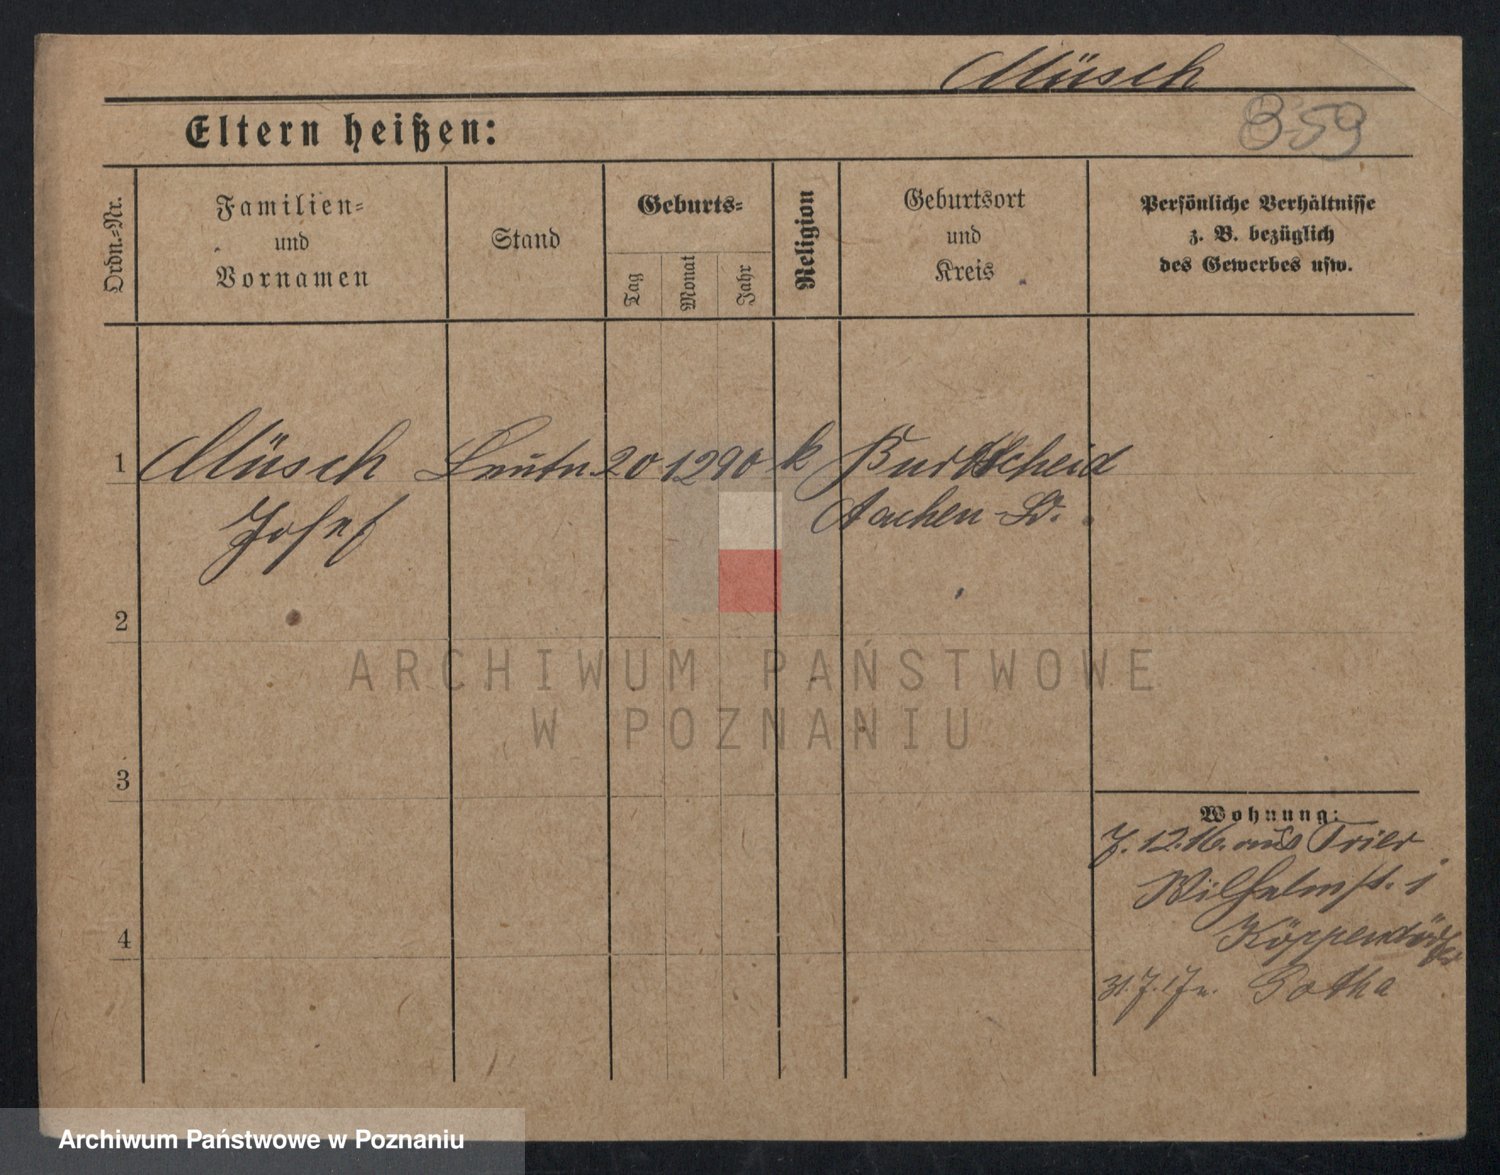 Müsch
359
Eltern heißen:
Ordn.=Nr.
Familien=
und
Vornamen
Stand
Geburts=
Tag
Monat
Jahr
Religion
Geburtsort
und
Kreis
Persönliche Verhältnisse
z. B. bezüglich
des Gewerbes usw.
1 Müsch Leutn. 20 12 90 k Burtscheid
Josef Aachen-Ld.
2
ARCHIWUM PAŃSTWOWE
W POZNANIU
3
Wohnung:
7.12.16. aus Trier
Wilhelmst. 1
4
31.7.17 n. Gotha
Archiwum Państwowe w Poznaniu